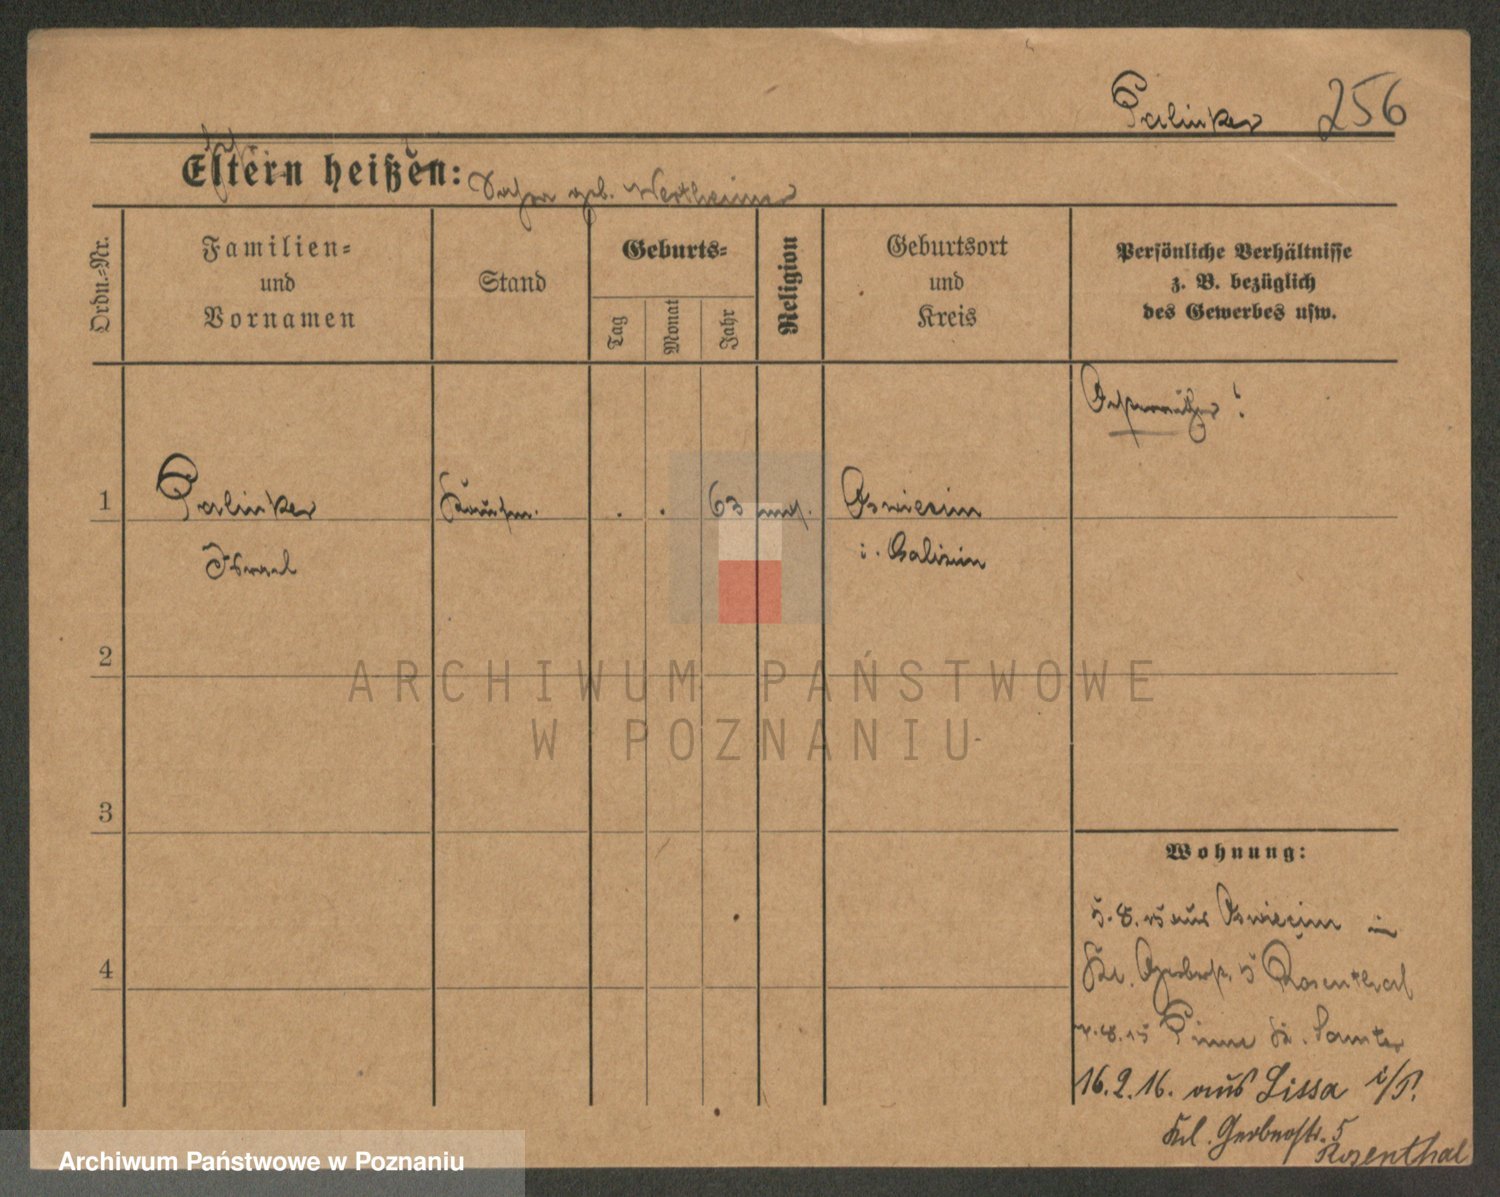 Palinker 256
Eltern heißen:
geb. Wertheimer
Ordn.-Nr.
Familien-
und
Vornamen
Stand
Geburts-
Tag
Monat
Jahr
Religion
Geburtsort
und
Kreis
Persönliche Verhältnisse
z. B. bezüglich
des Gewerbes usw.
Österreicher!
1
Palinker
Kaufm.
. . 63 mos.
Oswiecim
Israel
i. Galizien
2
3
4
Wohnung:
5.8.15 aus Oswiecim in
Kl. Gerberstr. 5 Rosenthal
7.8.15 Pinne Kr. Samter
16.2.16. aus Lissa i/P.
Kl. Gerberstr. 5
Rosenthal
ARCHIWUM PAŃSTWOWE
W POZNANIU
Archiwum Państwowe w Poznaniu